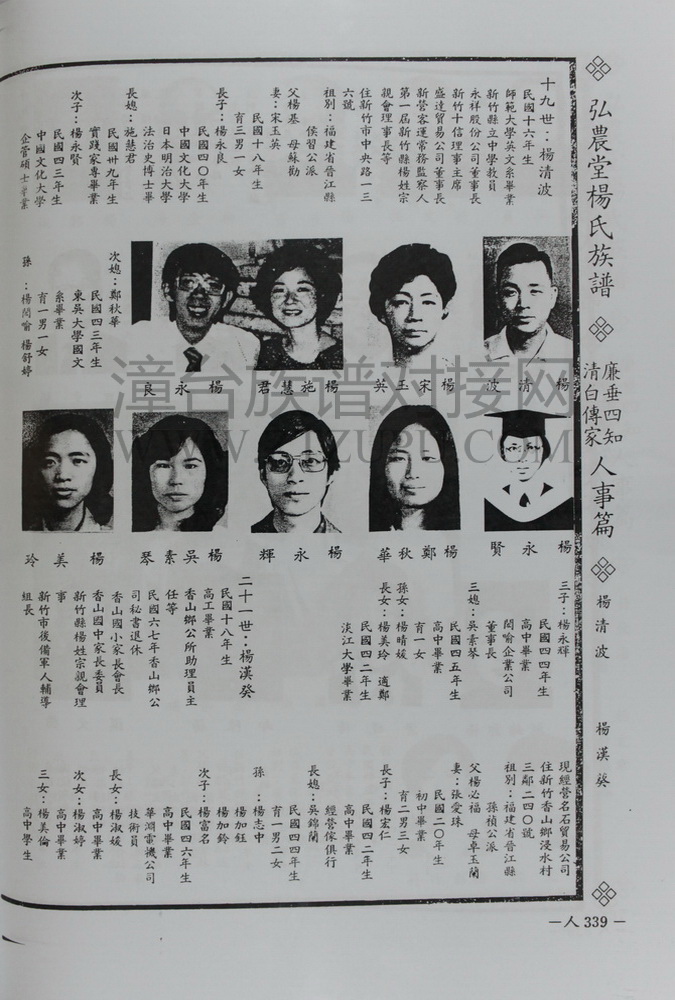 弘農堂楊氏族譜
廉垂四知
清白傳家
人事篇
楊清波
楊漢癸
十九世：楊清波
民國十六年生
師範大學英文系畢業
新竹縣立中學教員
永祥股份公司董事長
新竹十信理事主席
盛達貿易公司董事長
新營客運常務監察人
第一屆新竹縣楊姓宗
親會理事長等
住新竹市中央路一三
六號
祖別：福建省晉江縣
侯習公派
父楊基 母蘇勸
妻：宋玉英
民國十八年生
育三男一女
長子：楊永良
民國四〇年生
中國文化大學
日本明治大學
法治史博士畢
長媳：施慧君
民國卅九年生
實踐家專畢業
次子：楊永賢
民國四三年生
中國文化大學
企管碩士畢業
次媳：鄭秋華
民國四三年生
東吳大學國文
系畢業
育一男一女
孫：楊閔喻 楊舒婷
楊清波
楊宋玉英
楊施慧君
楊永良
楊永賢
楊鄭秋華
楊永輝
楊吳素琴
楊美玲
三子：楊永輝
民國四四年生
高中畢業
閔喻企業公司
董事長
三媳：吳素琴
民國四五年生
高中畢業
育一女
孫女：楊晴媛
長女：楊美玲 適鄭
民國四二年生
淡江大學畢業
二十一世：楊漢癸
民國十八年生
高工畢業
香山鄉公所助理員主
任等
民國六七年香山鄉公
司秘書退休
香山國小家長會長
香山國中家長委員
新竹縣楊姓宗親會理
事
新竹市後備軍人輔導
組長
現經營名石貿易公司
住新竹香山鄉浸水村
三鄰二四〇號
祖別：福建省晉江縣
孫積公派
父楊必福 母卓玉蘭
妻：張愛珠
民國二〇年生
初中畢業
育二男三女
長子：楊宏仁
民國四二年生
高中畢業
經營傢俱行
長媳：吳錦蘭
民國四四年生
育一男二女
孫：楊志中
楊加鈺
楊加鈴
次子：楊富名
民國四六年生
高中畢業
華淵電機公司
技術員
長女：楊淑媛
高中畢業
次女：楊淑婷
高中畢業
三女：楊美倫
高中學生
漳台族谱对接网
WWW.ZTZUPU.COM
—人339—